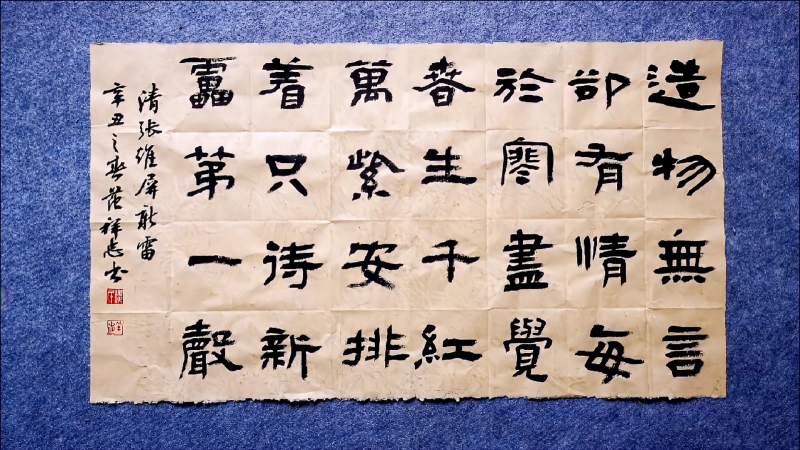 造物無言
卻有情每
於寒盡覺
春生千紅
萬紫安排
着只待新
靁第一聲
清张维屏新雷
辛丑之春范祥志书